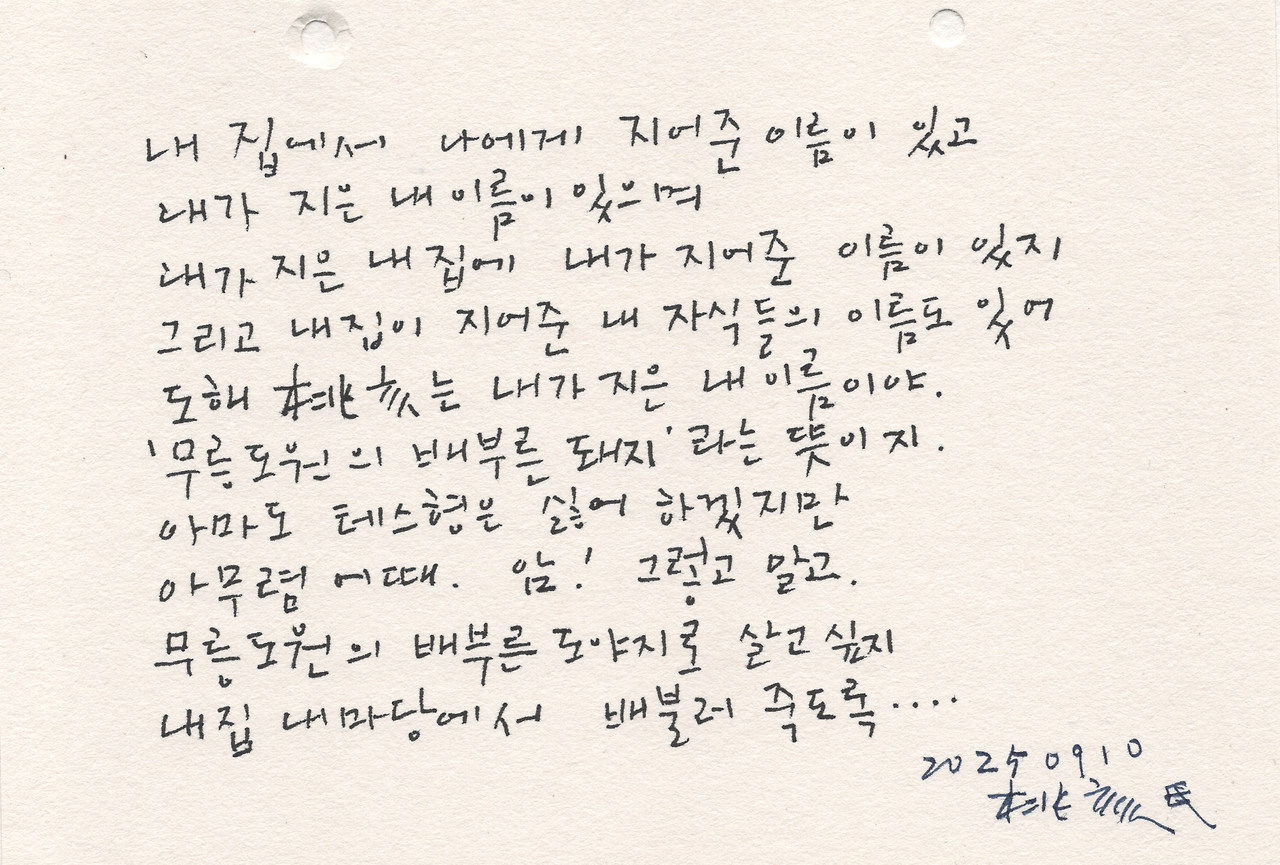 내 집에서 나에게 지어준 이름이 있고
내가 지은 내 이름이 있으며
내가 지은 내 집에 내가 지어준 이름이 있지
그리고 내집이 지어준 내 자식들의 이름도 있어
도해 桃亥는 내가 지은 내 이름이야.
'무릉도원의 배부른 돼지'라는 뜻이지.
아마도 테스형은 싫어 하겠지만
아무렴 어때. 암! 그렇고 말고.
무릉도원의 배부른 도야지로 살고 싶지
내집 내마당에서 배불러 죽도록....
20250910
桃亥氏